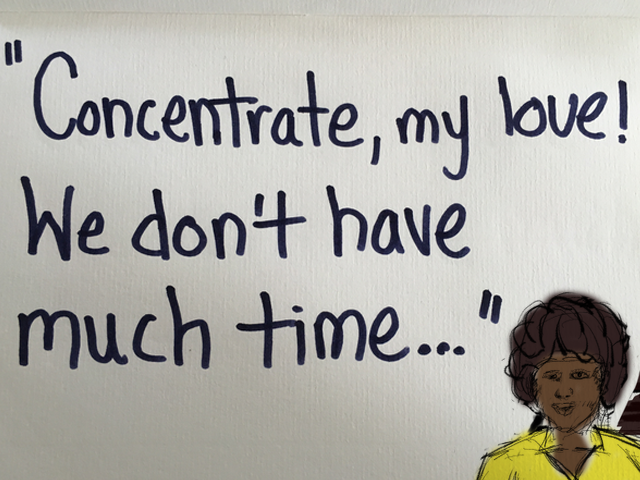 "Concentrate, my love!
We don't have
much time..."